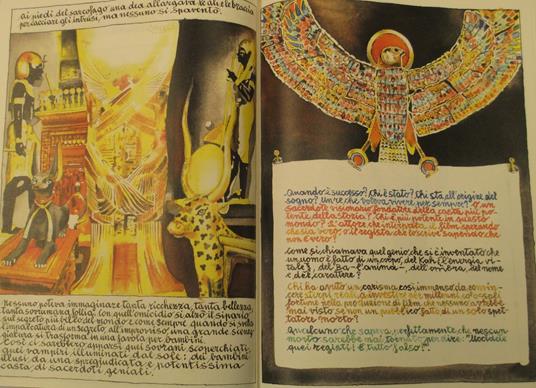 ai piedi del sarcofago una dea allargava le ali e le braccia
per cacciare gli intrusi, ma nessuno si spaventò.
nessuno poteva immaginare tanta ricchezza, tanta bellezza,
tanta sontuosa follia: con quell'omicidio si alzò il sipario
sul segreto più bello del mondo e come sempre quando si svela
l'impalcatura di un segreto, all'improvviso una grande scienza
si trasforma in una favola per bambini.
così ci sarebbero apparsi quei sovrani scoperchiati,
quei vampiri illuminati dal sole: dei bambini
illusi da una spregiudicata e potentissima
casta di sacerdoti geniali.
Quando è successo? Chi è stato? Chi sta all'origine del
sogno? Un re che voleva vivere per sempre? O un
sacerdote visionario fondatore della casta più po-
tente della storia? Chi è più potente in questo
mondo? L'attore che interpreta il film sperando
che sia vero o il regista che lo scrive sapendo che
non è vero?
come si chiamava quel genio che si è inventato che
un uomo è fatto di un corpo, del Kah (l'energia vi-
tale), del Ba (l'anima), dell'ombra, del nome
e del carattere?
Chi ha avuto un carisma così immenso da convin-
cere stirpi reali a investire per millenni colossali
fortune nella produzione di film che nessuno avrebbe
mai visto se non un pubblico fatto di un solo spet-
tatore morto?
Qualcuno che sapeva perfettamente che nessun
morto sarebbe mai tornato per dire: "Uccidete
quei registi! È tutto falso!"